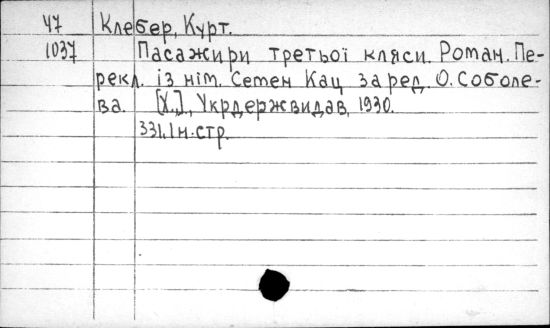 47 Клебер, Курт.
1037 Пасажири третьої кляси. Роман. Пе-
рекл. із нім. Семен Кац за ред. О. Соболє-
ва. [Х.], Укрдержвидав, 1930.
331, 1 н. стр.